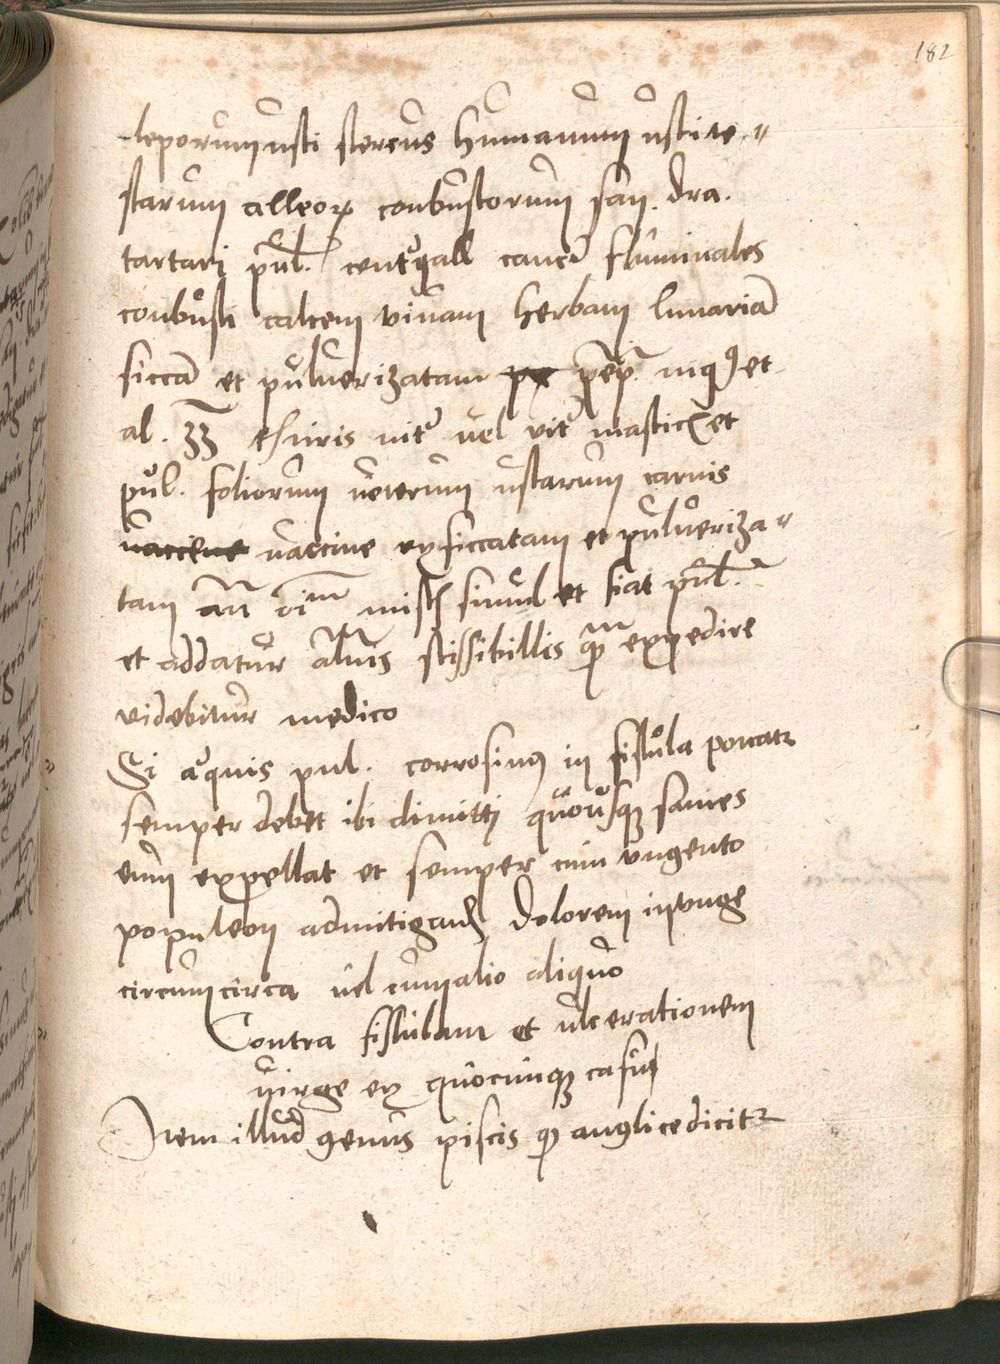 182
leporum usti stercus humanum usti te-
starum alleoꝝ conbustorum san. dra.
tartari pul. cent gall cancr fluminales
conbusti calcem vivam herbam lunariã
siccã et pulverizatam pep. nigꝰ et
al. ʒʒ es uiris nitr vel vitr masticꝭ et
pul. foliorum veterum ustarum carnis
vaccine vaccine exsiccatam et pulveriza-
tam añ oĩm misꝭ simul et fiat pul.
et addatur alijs scissibillis qm expedire
videbitur medico
Si aquis pul. corrosivꝰ in fistula ponatr
semper debet ibi dimitti quousqꝫ sanies
eum expellat et semper cum ungento
populeon ad mitigandꝭ dolorem inunge
circum circa vel cum alio aliquo
Contra fistulam et ulcerationem
virge ex quocunqꝫ casu
Item illud genus piscis qd anglice dicitr